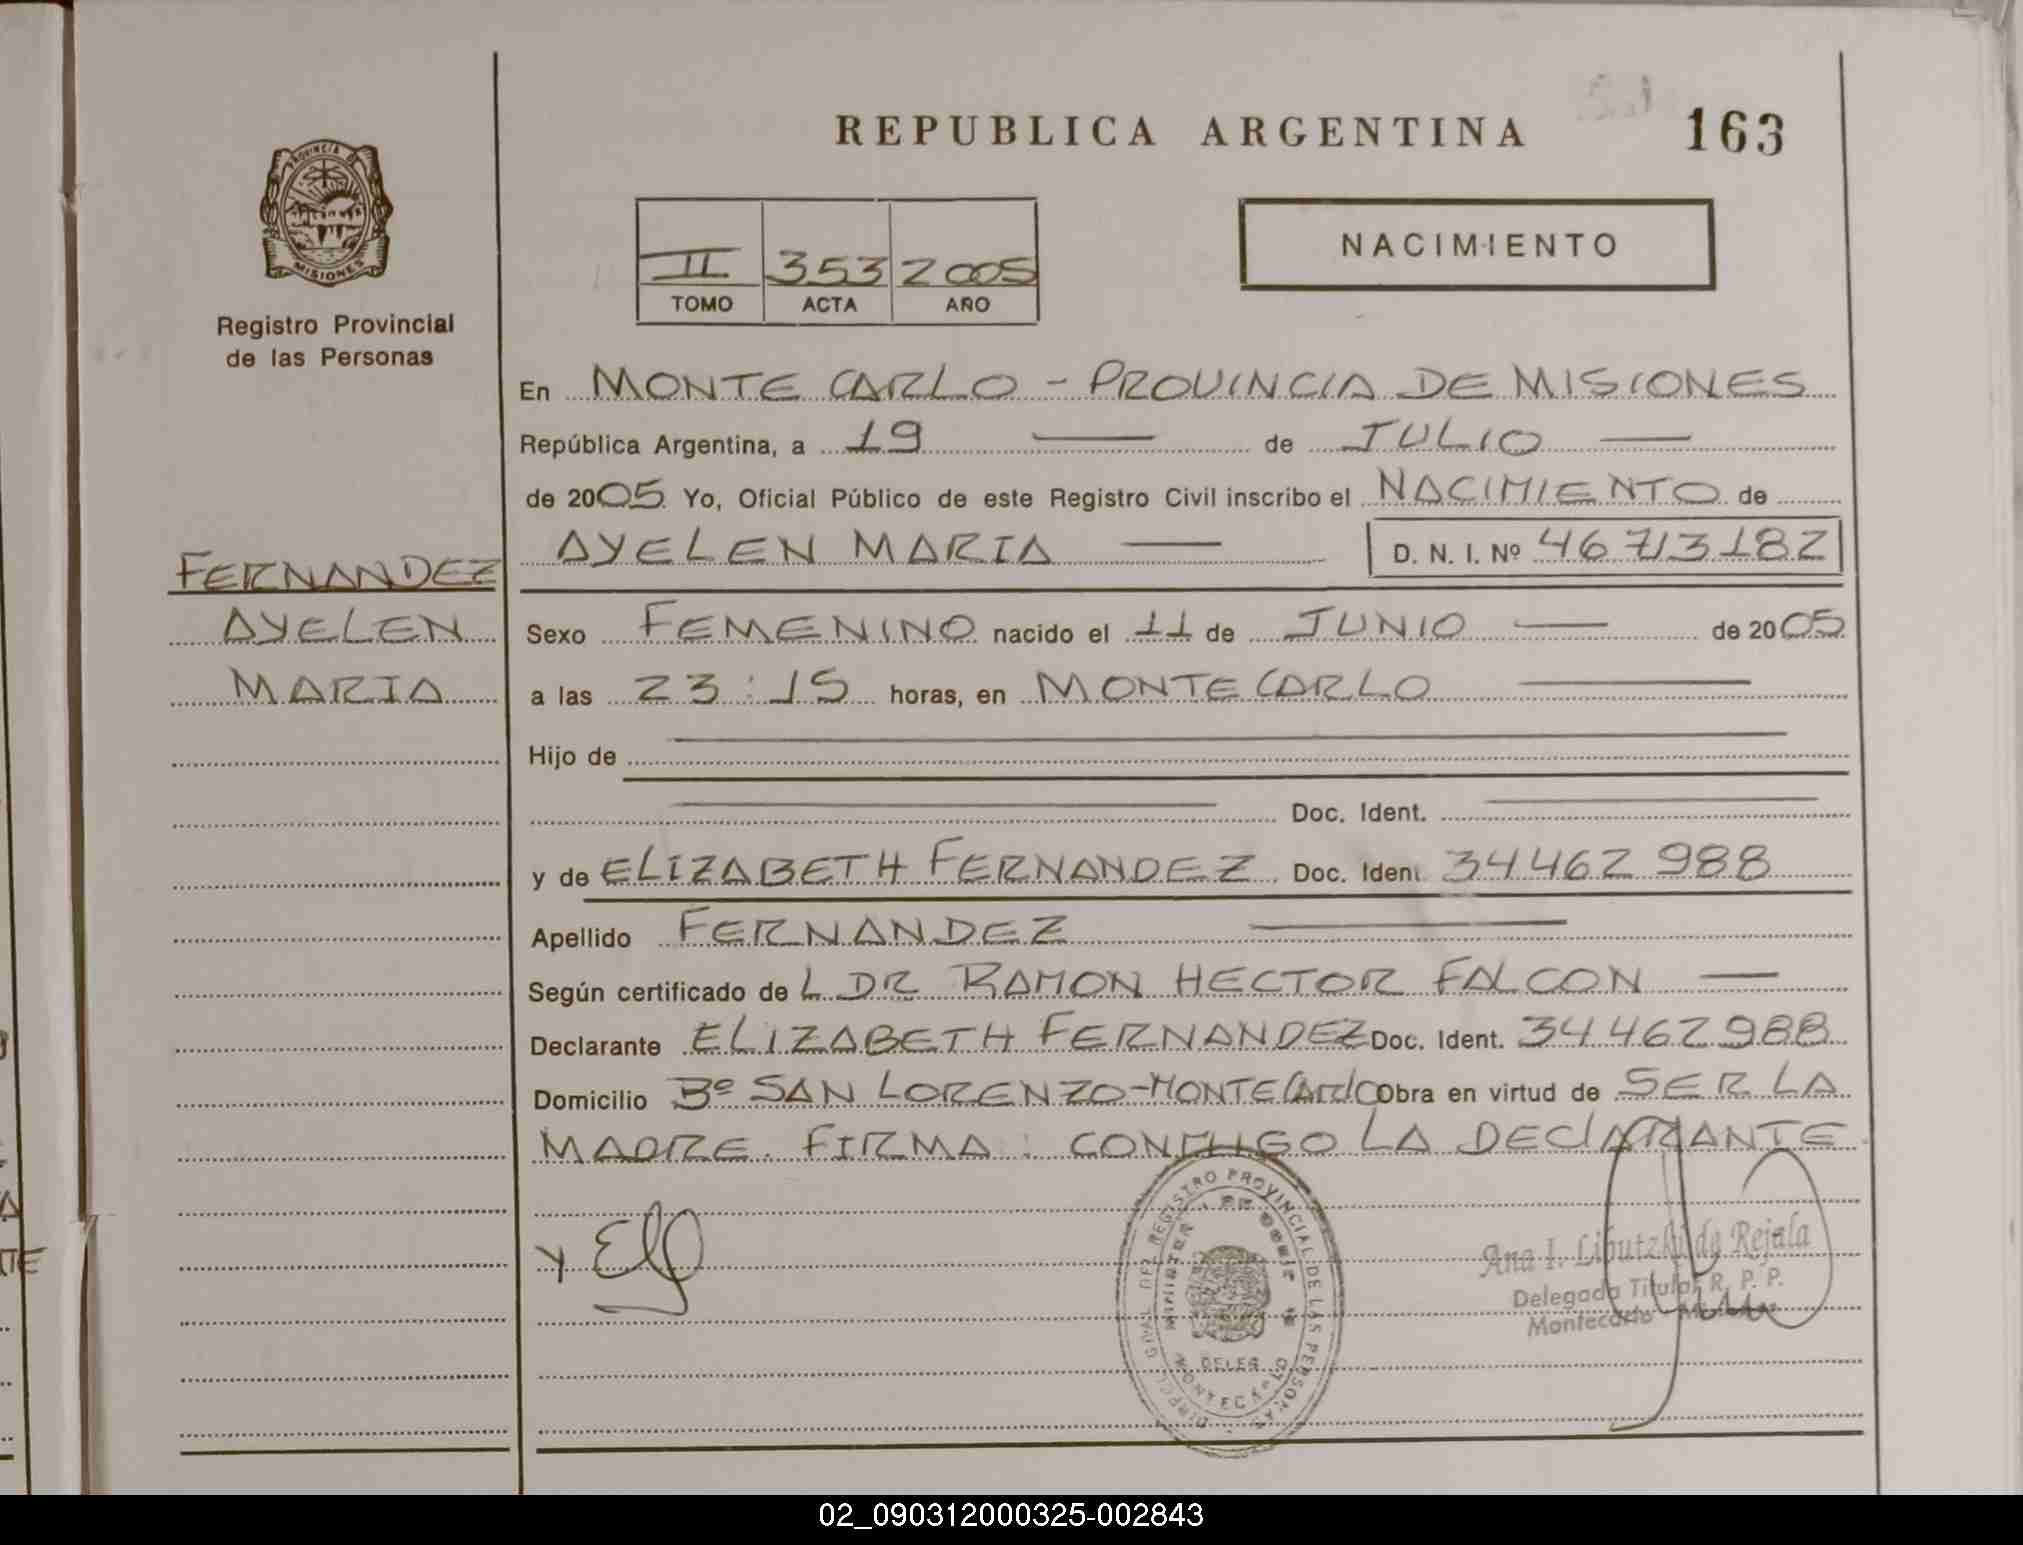 REPUBLICA ARGENTINA
163
PROVINCIA DE
MISIONES
Registro Provincial
de las Personas
II 353 2005
TOMO ACTA AÑO
NACIMIENTO
En MONTE CARLO - PROVINCIA DE MISIONES
República Argentina, a 19 — de JULIO —
de 2005 Yo, Oficial Público de este Registro Civil inscribo el NACIMIENTO de
AYELEN MARIA — D. N. I. Nº 46713182
FERNANDEZ
AYELEN
MARIA
Sexo FEMENINO nacido el 11 de JUNIO — de 2005
a las 23:15 horas, en MONTECARLO —
Hijo de —
— Doc. Ident. —
y de ELIZABETH FERNANDEZ Doc. Ident. 34462988
Apellido FERNANDEZ —
Según certificado de L DR RAMON HECTOR FALCON —
Declarante ELIZABETH FERNANDEZ Doc. Ident. 34462988
Domicilio Bº SAN LORENZO-MONTECARLO Obra en virtud de SER LA
MADRE. FIRMA: CONMIGO LA DECLARANTE
REGISTRO PROVINCIAL DE LAS PERSONAS
Ana I. Liputzki de Rejala
Delegada Titular R. P. P.
Montecarlo -
02_090312000325-002843